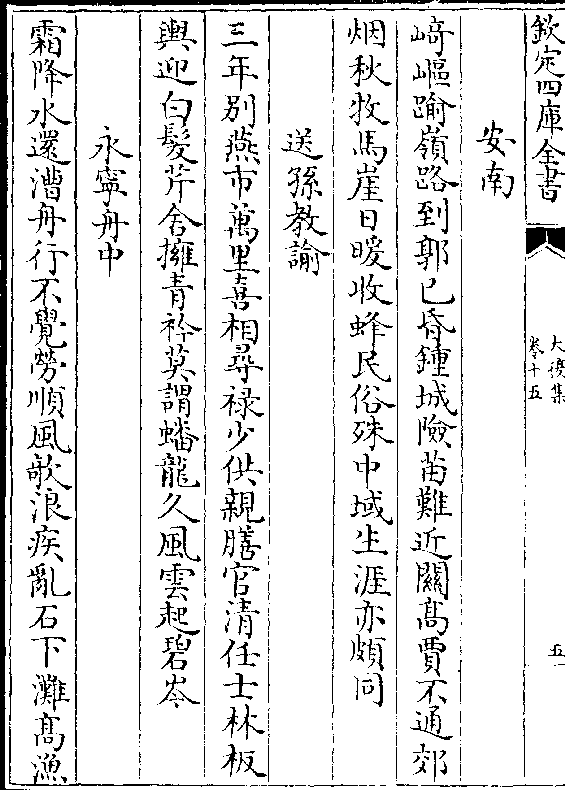 欽定四庫全書
大復集
卷十五
五
安南
崎嶇踰嶺路到郭已昏鍾城險苗難近關髙賈不通郊
烟秋牧馬崖日暖收蜂民俗殊中域生涯亦頗同
送孫教諭
三年别燕市萬里喜相尋禄少供親膳官清任士林板
輿迎白髮芹舍擁青衿莫謂蟠龍久風雲起碧岑
永寧舟中
霜降水還漕舟行不覺勞順風欹浪疾亂石下灘髙漁